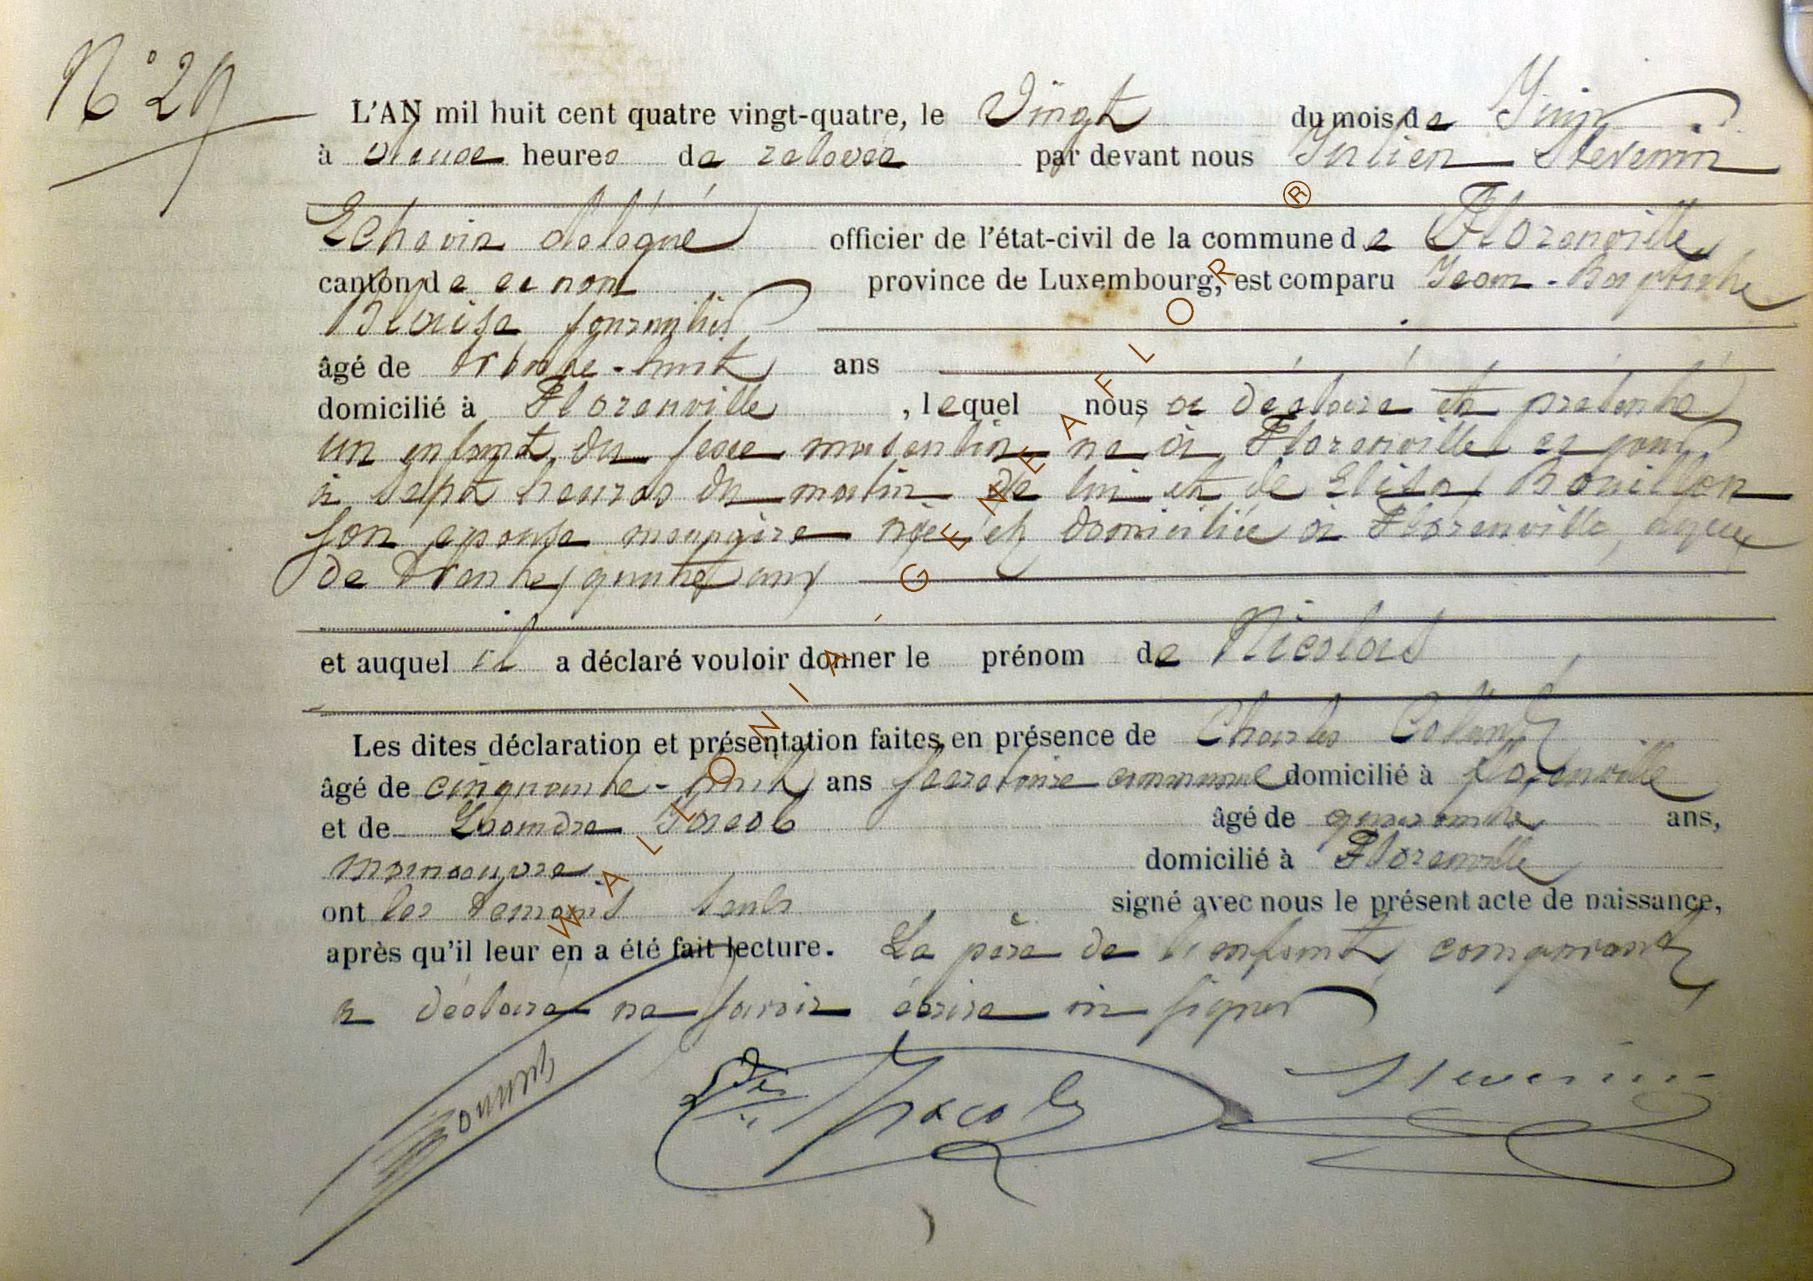 N° 29
L'AN mil huit cent quatre vingt-quatre, le Vingt du mois de Juin
à deux heures de relevée par devant nous Julien Stevenin
Echevin délégué officier de l'état-civil de la commune de Florenville
canton de ce nom province de Luxembourg, est comparu Jean-Baptiste
Blaise journalier
âgé de trente-huit ans
domicilié à Florenville, lequel nous a déclaré et présenté
un enfant du sexe masculin né à Florenville ce jour
à sept heures du matin de lui et de Elisa Bouillon
son épouse ménagère née et domiciliée à Florenville, âgée
de trente quatre ans
et auquel il a déclaré vouloir donner le prénom de Nicolas
Les dites déclaration et présentation faites en présence de Charles
âgé de cinquante-huit ans secrétaire communal domicilié à Florenville
et de Léandre Jacob âgé de quarante ans,
manoeuvre domicilié à Florenville
ont les témoins seuls signé avec nous le présent acte de naissance,
après qu'il leur en a été fait lecture. Le père de l'enfant comparant
a déclaré ne savoir écrire ni signer
Jacob Stevenin
WALLONIA - GENEAFLOR ®